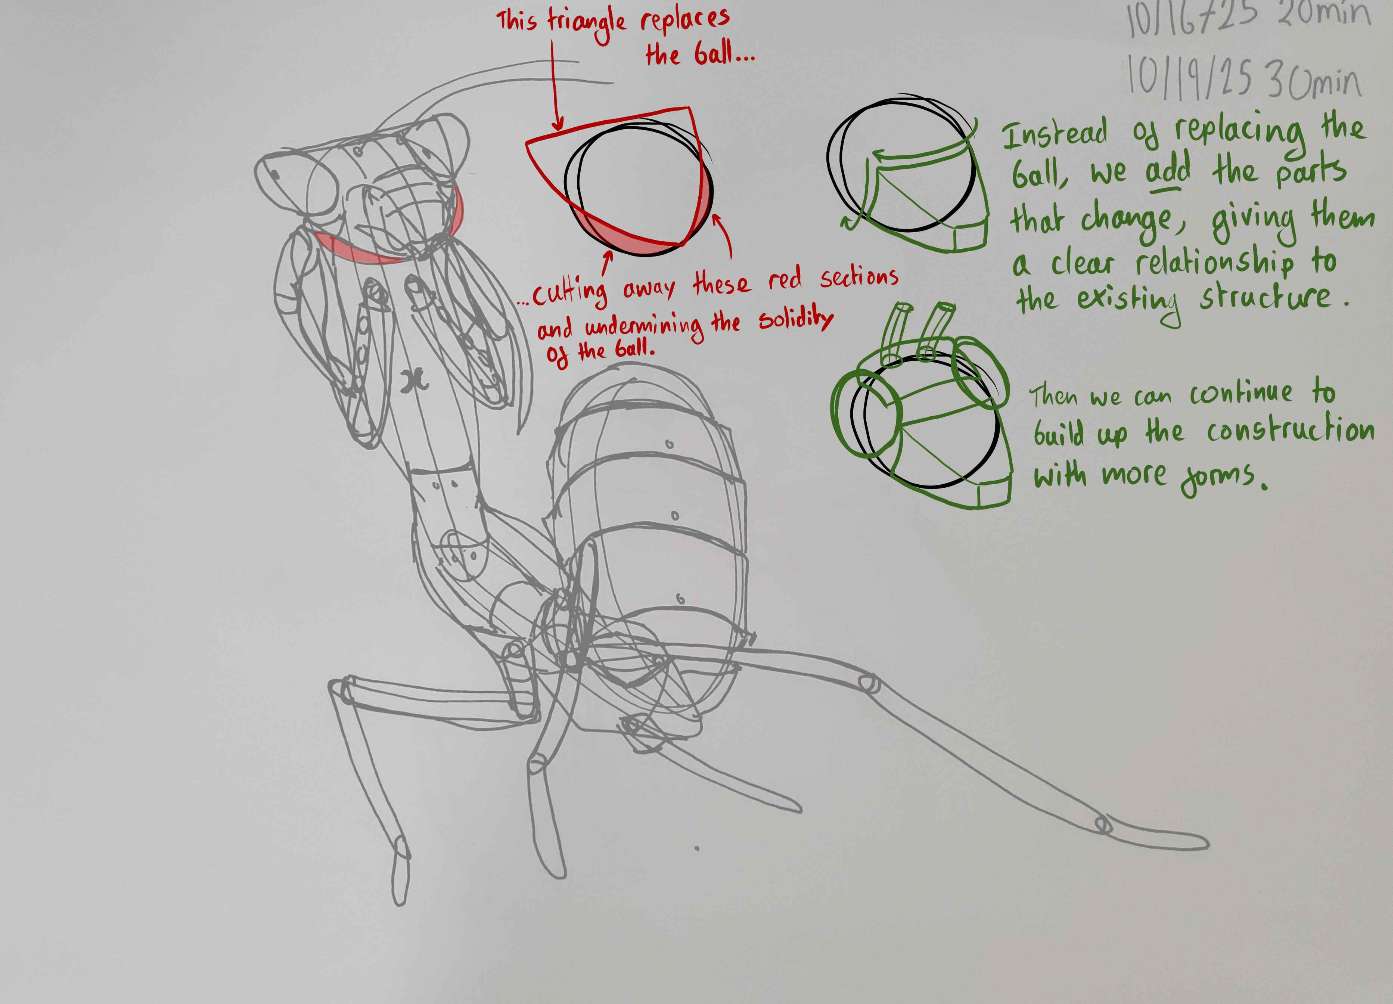 This triangle replaces
the ball...
10/16/25 20min
10/19/25 30min
Instead of replacing the
ball, we add the parts
that change, giving them
a clear relationship to
the existing structure.
...cutting away these red sections
and undermining the solidity
of the ball.
Then we can continue to
build up the construction
with more forms.